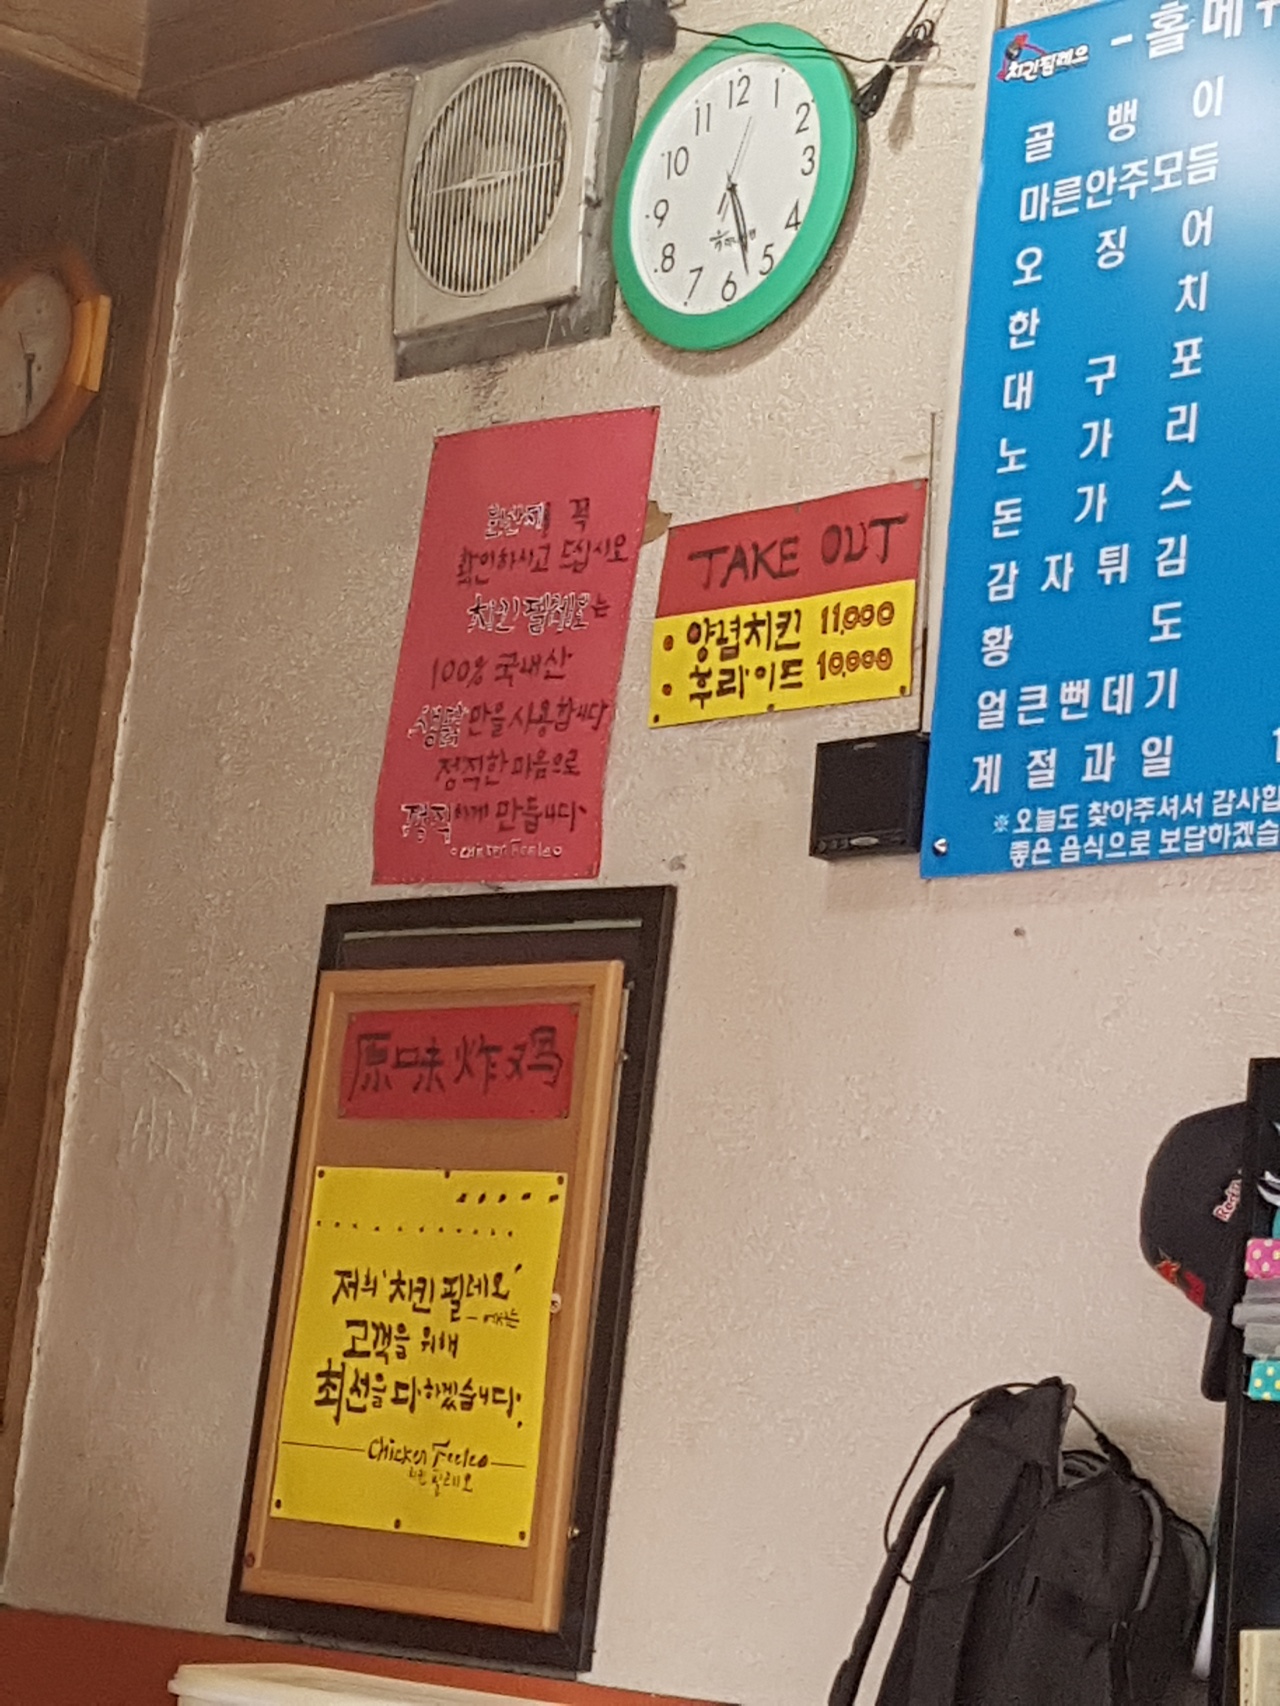 12
1
2
3
4
5
6
7
8
9
10
11
치킨필레오
- 홀메
골뱅이
마른안주모듬
오징어
한치
대구포
노가리
돈가스
감자튀김
황도
얼큰뻔데기
계절과일
※오늘도 찾아주셔서 감사합
좋은 음식으로 보답하겠습
원산지 꼭
확인하시고 드십시오
치킨필레오는
100% 국내산
생닭만을 사용합니다
정직한 마음으로
정직하게 만듭니다.
TAKE OUT
• 양념치킨 11,000
• 후라이드 10,000
原味炸鸡
저희 '치킨 필레오'
고객을 위해
최선을 다하겠습니다.
Chicken Feeleo
치킨 필레오